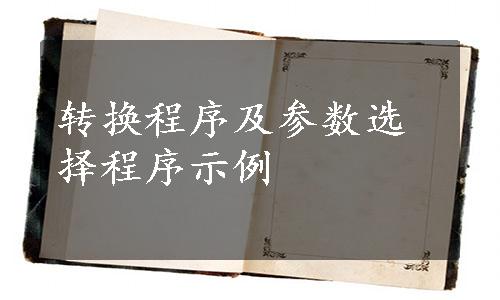 转换程序及参数选
择程序示例